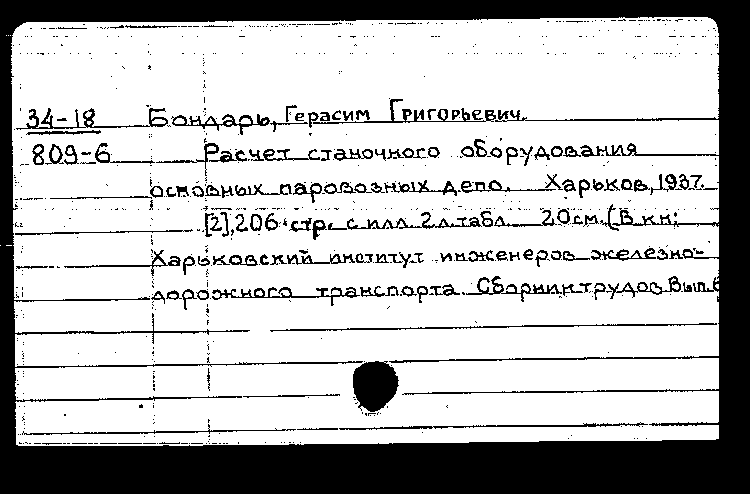 34-18 Бондарь, Герасим Григорьевич.
809-6 Расчет станочного оборудования
основных паровозных депо. Харьков, 1937.
[2], 206 стр. с илл. 2 л. табл. 20 см. (В кн:
Харьковский институт инженеров железно-
дорожного транспорта. Сборник трудов. Вып. 6